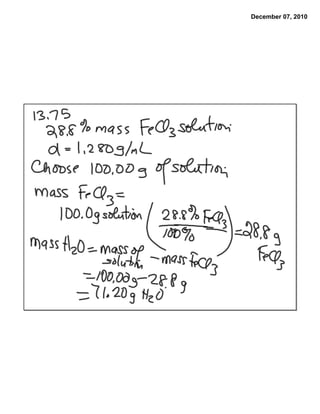 December 07, 2010
13.75
28.8% mass FeCl3 solution
d = 1.280 g/mL
Choose 100.00 g of solution
mass FeCl3 =
100.0g solution ( 28.8% FeCl3 / 100% ) = 28.8 g FeCl3
mass H2O = mass of solution - mass FeCl3
= 100.00g - 28.8 g
= 71.20g H2O